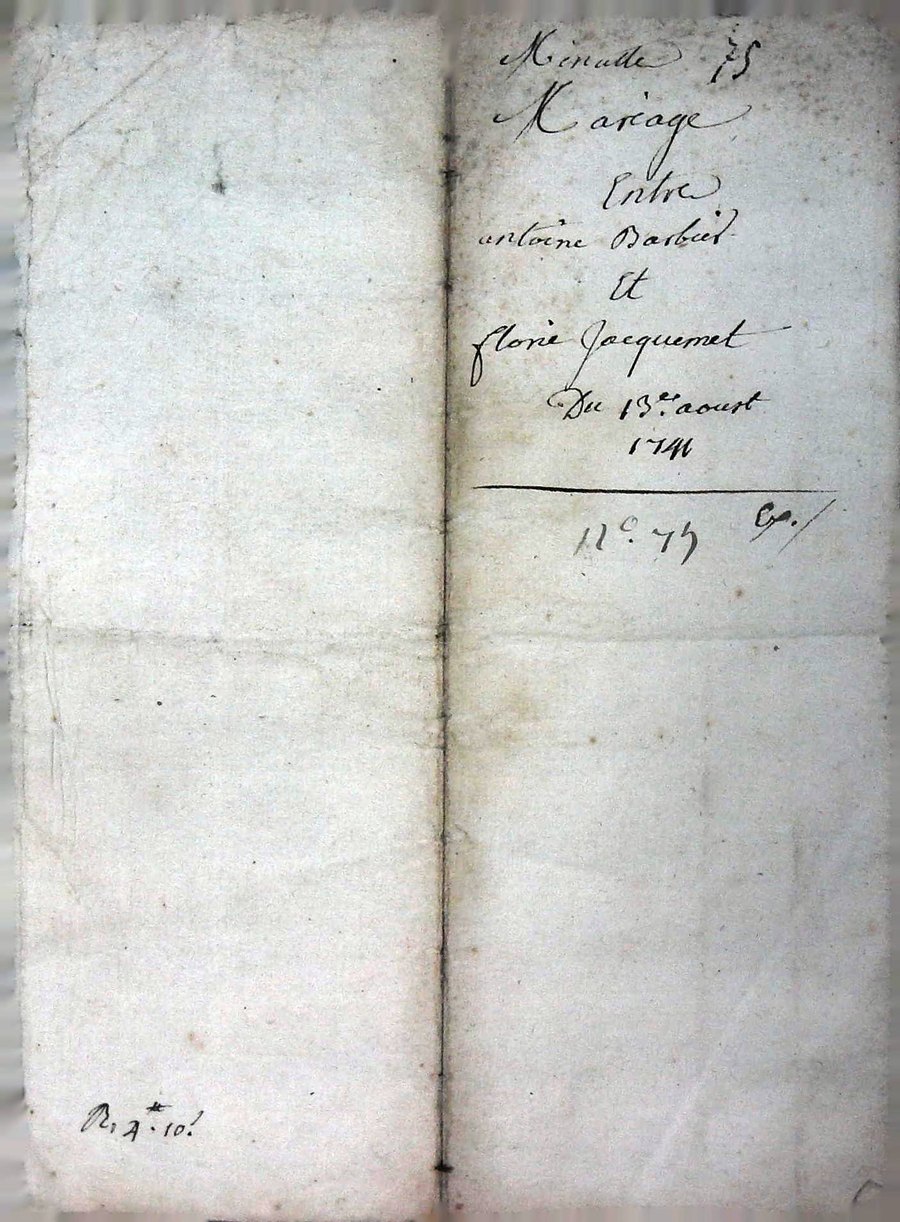 Minutte 75
Mariage
Entre
antoine Barbier
Et
florie Jacquemet
Du 13.e aoust
1741
Ex./
N°. 75
R. 4# 10s